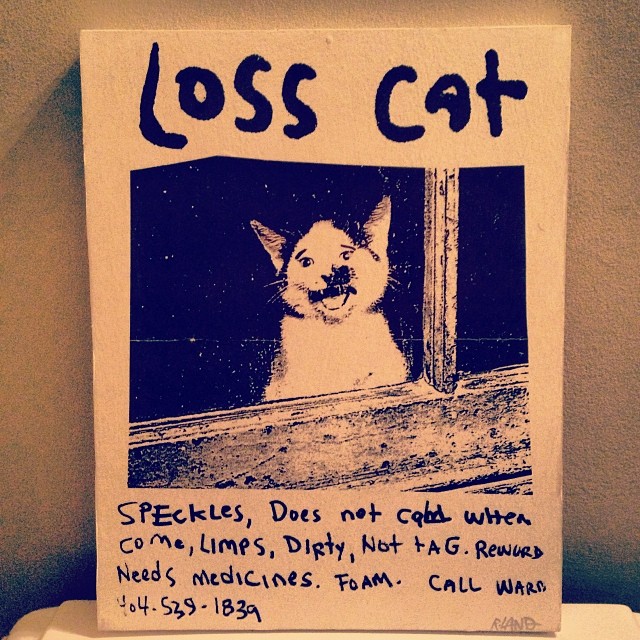 Loss cat
SPEckLEs, Does not when
come, LIMPS, DIrty, Not tAG. REWURD
Needs MEDICINES. FOAM. CALL WARD
404-539-1839